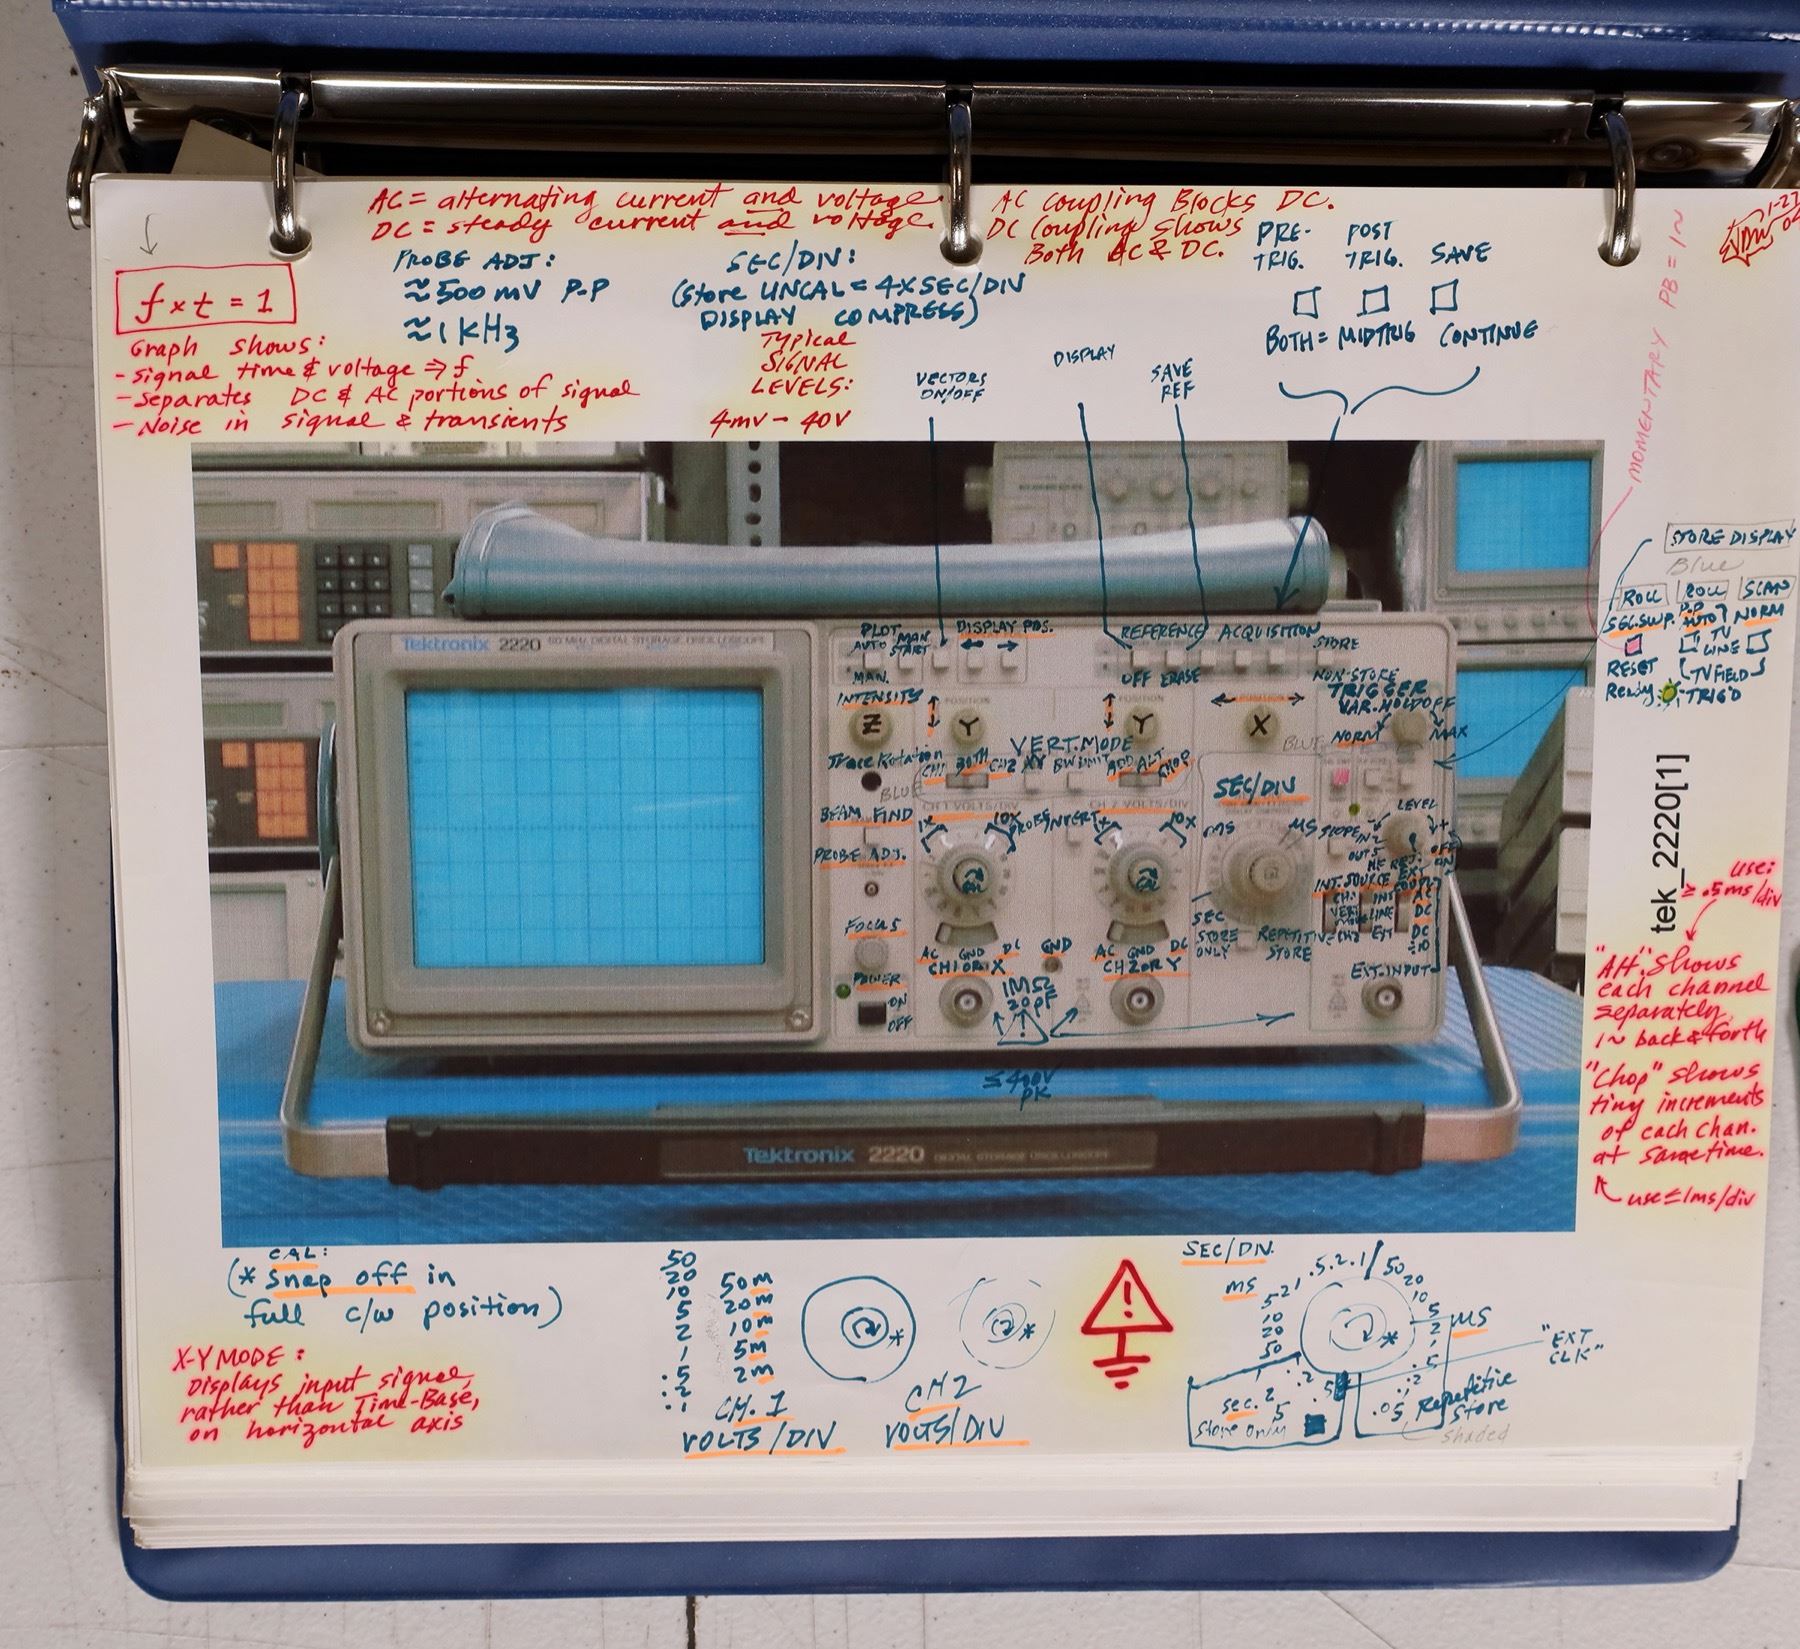 AC = alternating current and voltage.
DC = steady current and voltage.
AC coupling Blocks DC.
DC coupling shows
Both AC & DC.
f x t = 1
Graph shows:
- signal time & voltage ⇒ f
- separates DC & AC portions of signal
- Noise in signal & transients
PROBE ADJ:
≈500 mV P-P
≈1 KHz
SEC/DIV:
(Store UNCAL = 4X SEC/DIV
DISPLAY COMPRESS)
Typical
SIGNAL
LEVELS:
4mv - 40V
PRE-
TRIG.
POST
TRIG.
SAVE
BOTH = MIDTRIG
CONTINUE
VECTORS
ON/OFF
DISPLAY
SAVE
REF
MOMENTARY PB = IN
STORE DISPLAY
Blue
ROLL
ROLL
SCAN
P-P
AUTO
NORM
TV
LINE
RESET
Ready
TV FIELD
TRIG'D
Tektronix 2220 60 MHz DIGITAL STORAGE OSCILLOSCOPE
PLOT
AUTO
MAN.
START
MAN.
DISPLAY POS.
REFERENCE
ACQUISITION
STORE
OFF ERASE
NON-STORE
INTENSITY
Z
POSITION
Y
POSITION
Y
POSITION
X
TRIGGER
VAR. HOLDOFF
NORM
MAX
BLUE
Trace Rotation
VERT. MODE
CH1 BOTH CH2 XY BW LIMIT ADD ALT CHOP
BLUE
BEAM FIND
PROBE ADJ.
FOCUS
POWER
ON
OFF
CH 1 VOLTS/DIV
CH 2 VOLTS/DIV
1X
10X
PROBE
INVERT
10X
CAL
CAL
SEC/DIV
MS
SEC
STORE
ONLY
REPETITIVE
STORE
LEVEL
SLOPE
IN
OUT
HF REJ.
OFF
ON
INT. SOURCE EXT
CH1
INT
AC
VERT
MODE
LINE
DC
CH2
EXT
DC
÷10
EXT. INPUT
AC GND DC
CH1 OR X
GND
AC GND DC
CH2 OR Y
1MΩ
20 pF
≤400V
PK
Tektronix 2220 DIGITAL STORAGE OSCILLOSCOPE
tek_2220[1]
use:
≥ .5ms/div
"Alt" shows
each channel
separately,
in back & forth
"Chop" shows
tiny increments
of each chan.
at same time.
use ≤ 1ms/div
CAL:
(* snap off in
full c/w position)
X-Y MODE:
Displays input signal,
rather than Time-Base,
on horizontal axis
50
20
10
5
2
1
.5
.2
.1
50m
20m
10m
5m
2m
*
CH. 1
VOLTS/DIV
*
CH2
VOLTS/DIV
!
SEC/DIV.
ms
.5 .2 .1
50
20
10
5
2
1
.5
.2
.1
.05
5 2 1
10
20
50
MS
*
"EXT
CLK"
sec.
store only
Repetitive
Store
shaded